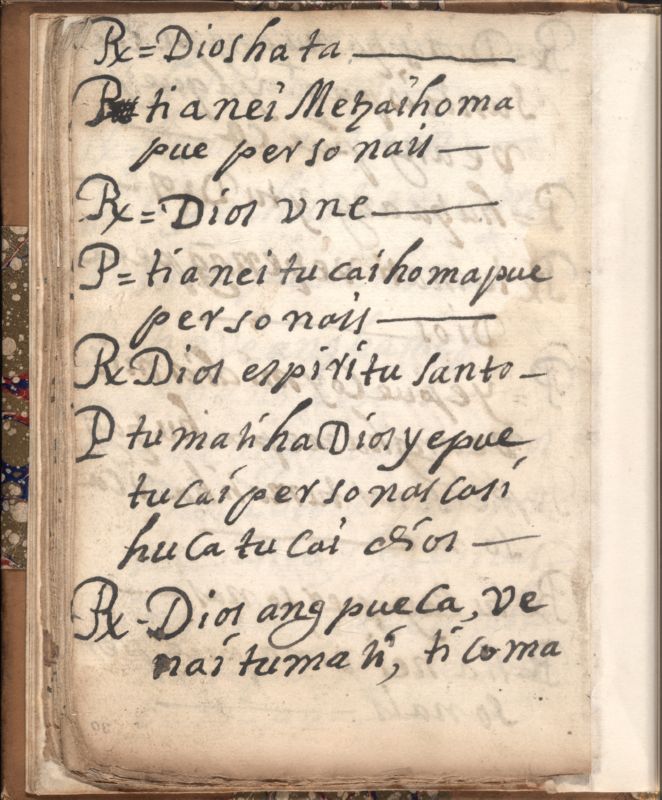 Rx = Dios hata
P tianei Mehaihoma
pue personais
Rx = Dios vne
P = tianei tucaihomapue
personais
Rx Dios espiritu santo
P tumatiha Dios yepue
tucai personas casi
hucatucai dios
Rx - Dios angpueca, ve
nai tumati, ticoma